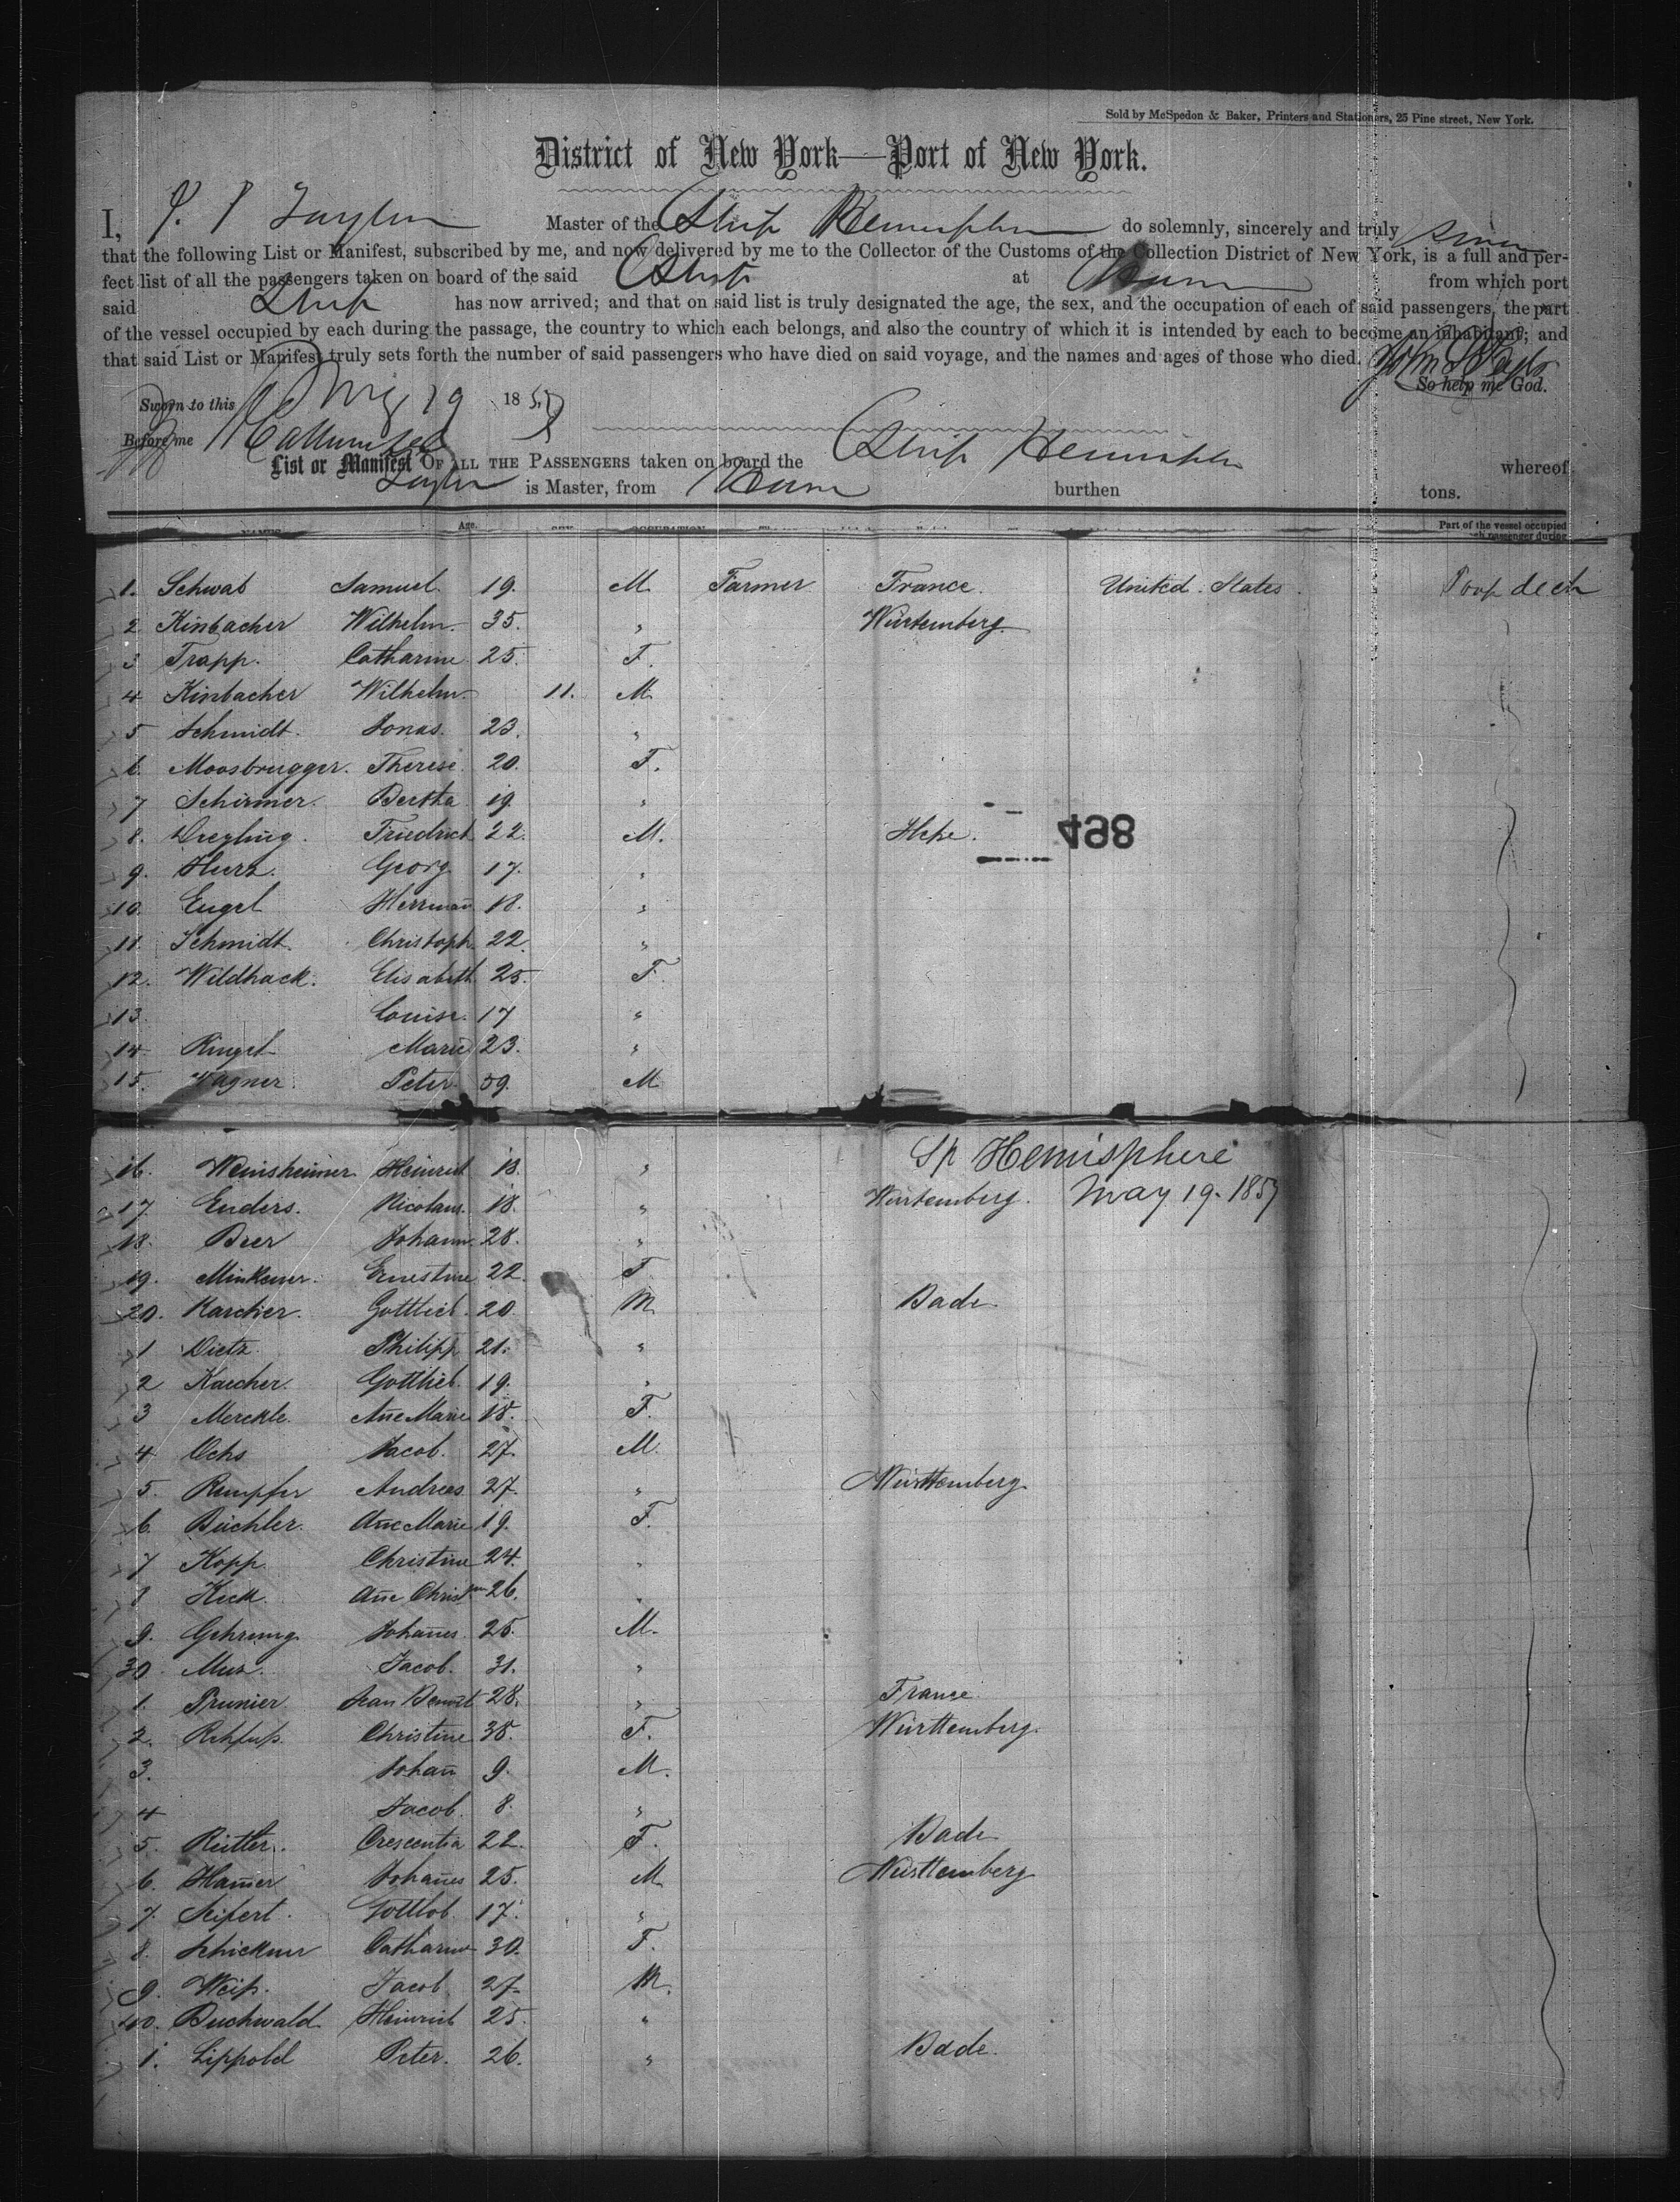 Sold by McSpedon & Baker, Printers and Stationers, 25 Pine street, New York.
District of New York—Port of New York.
I, Taylor Master of the Ship Hemisphere do solemnly, sincerely and truly swear
that the following List or Manifest, subscribed by me, and now delivered by me to the Collector of the Customs of the Collection District of New York, is a full and per-
fect list of all the passengers taken on board of the said Ship at Havre from which port
said Ship has now arrived; and that on said list is truly designated the age, the sex, and the occupation of each of said passengers, the part
of the vessel occupied by each during the passage, the country to which each belongs, and also the country of which it is intended by each to become an inhabitant; and
that said List or Manifest truly sets forth the number of said passengers who have died on said voyage, and the names and ages of those who died.
So help me God.
Sworn to this May 19 1857
Before me
List or Manifest OF ALL THE PASSENGERS taken on board the Ship Hemisphere whereof
Taylor is Master, from Havre burthen tons.
NAMES Age. SEX OCCUPATION Part of the vessel occupied
passenger during
1. Schwab Samuel. 19. M. Farmer France. United States. Poop deck
2. Kinbacher Wilhelm. 35. " Würtemberg.
3 Trapp. Catharine 25. F.
4 Kinbacher Wilhelm. 11. M
5 Schmidt. Jonas. 23. "
6. Moosbrugger. Therese. 20. F.
7 Schirmer. Bertha 19. "
8. Dreyling. Friedrich 22. M. Heße. 498
9. Hurz. Georg. 17. "
10. Engel Herrmañ 18. "
11. Schmidt. Christoph 22. "
12. Wildhack. Elisabeth 25. F.
13. Louise. 17 "
14 Ringel Marie 23. "
15. Wagner. Peter. 59. M.
Sp Hemisphere
16. Weinsheimer Heinrich 18. "
17 Enders. Nicolaus. 18. " Würtemberg. May 19. 1857
18. Beer Johann. 28. "
19. Ernestine 22. F
20. Karcher. Gottlieb. 20. M. Bade.
1 Dietz. Philipp 21. "
2 Karcher. Gottlieb. 19. "
3 Merckle. Añe Marie 18. F.
4 Ochs Jacob. 27. M.
5. Rempfer Andreas 27. " Württemberg.
6. Büchler. Añe Marie 19. F.
7 Kopp. Christine 24. "
8 Keck. Añe Christine 26. "
9. Gehrung. Johañes. 25. M.
30. Mux. Jacob. 31. "
1. Prunier Jean Benoit 28. " France.
2. Rehfuß. Christine 38. F. Württemberg.
3. Johañ 9. M.
4 Jacob. 8. "
5. Rütler. Crescentia 22. F. Bade
6. Hañer Johañes 25. M Württemberg
7. Seifert. Gottlob. 17. "
8. Schickner Catharine 30. F.
9. Weiß. Jacob 27. M.
40. Buchwald Heinrich 25. "
1. Lippold Peter. 26. " Bade.